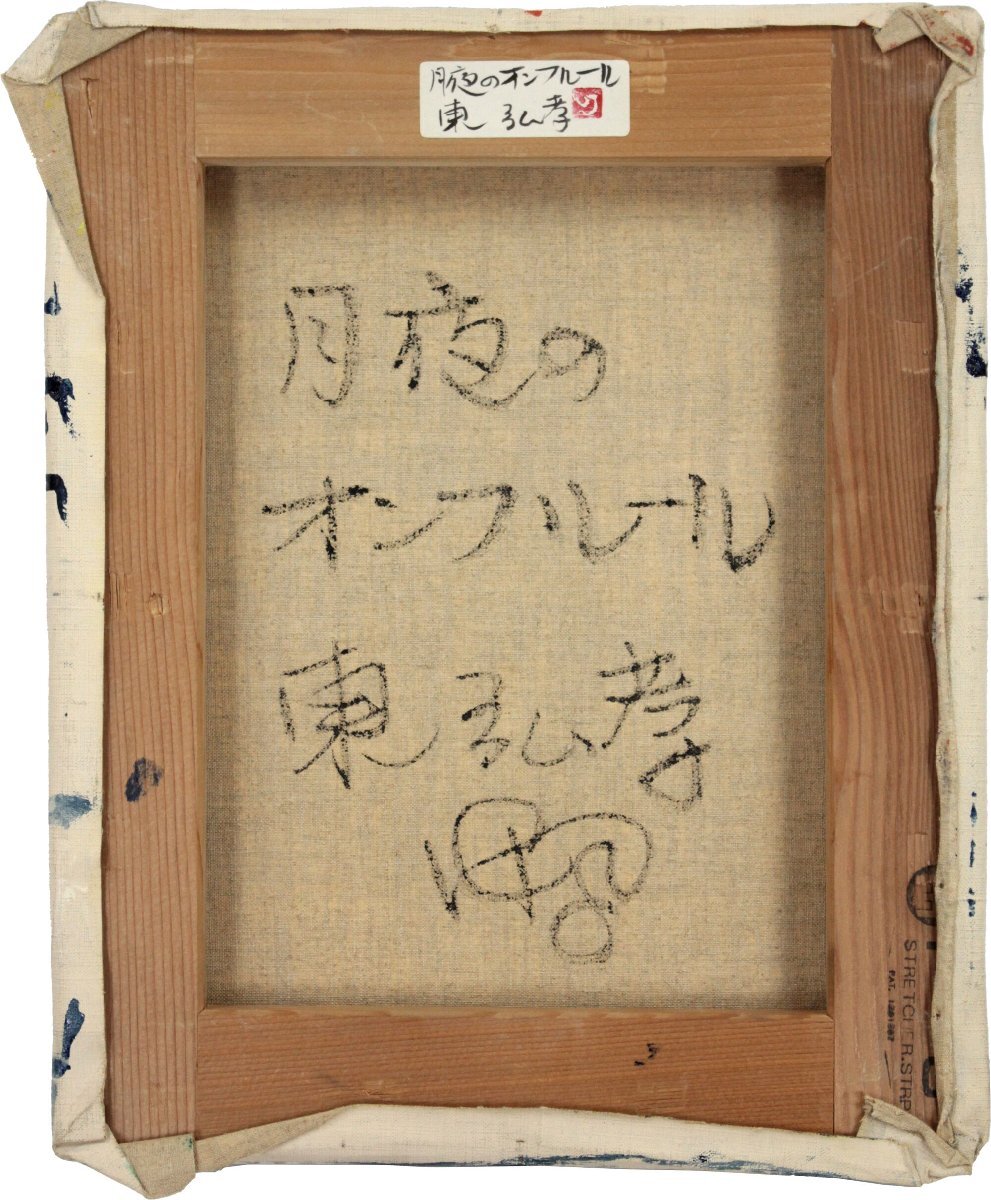 月夜のオンフルール
東 弘孝
月夜の
オンフルール
東 弘孝
STRETCHER.STRP
PAT. 1281387